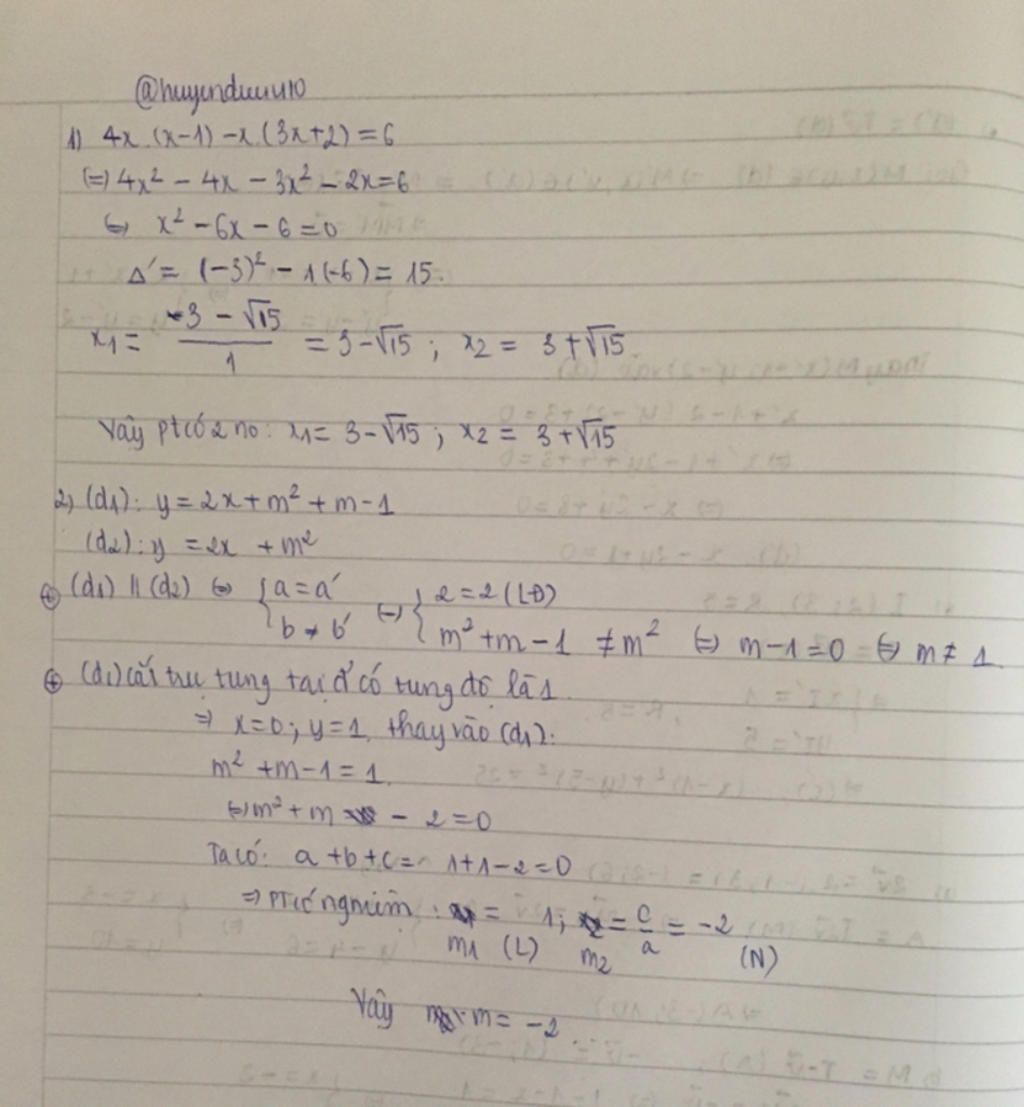 @huyenduuu410
1) 4x.(x-1) - x.(3x+2) = 6
(=) 4x² - 4x - 3x² - 2x = 6
(=) x² - 6x - 6 = 0
Δ' = (-3)² - 1(-6) = 15.
x1 = (-3 - √15)/1 = 3 - √15 ; x2 = 3 + √15
Vậy pt có 2 no: x1 = 3 - √15 ; x2 = 3 + √15
2) (d1): y = 2x + m² + m - 1
(d2): y = 2x + m²
⊕ (d1) // (d2) (=) { a = a' ; b ≠ b' (=) { 2 = 2 (LĐ) ; m² + m - 1 ≠ m² (=) m - 1 = 0 (=) m ≠ 1
⊕ (d1) cắt trục tung tại đ' có tung độ là 1.
=> x = 0 ; y = 1, thay vào (d1):
m² + m - 1 = 1
(=) m² + m - 2 = 0
Ta có: a + b + c = 1 + 1 - 2 = 0
=> PT có nghiệm : m1 = 1 (L) ; m2 = c/a = -2 (N)
Vậy m = -2